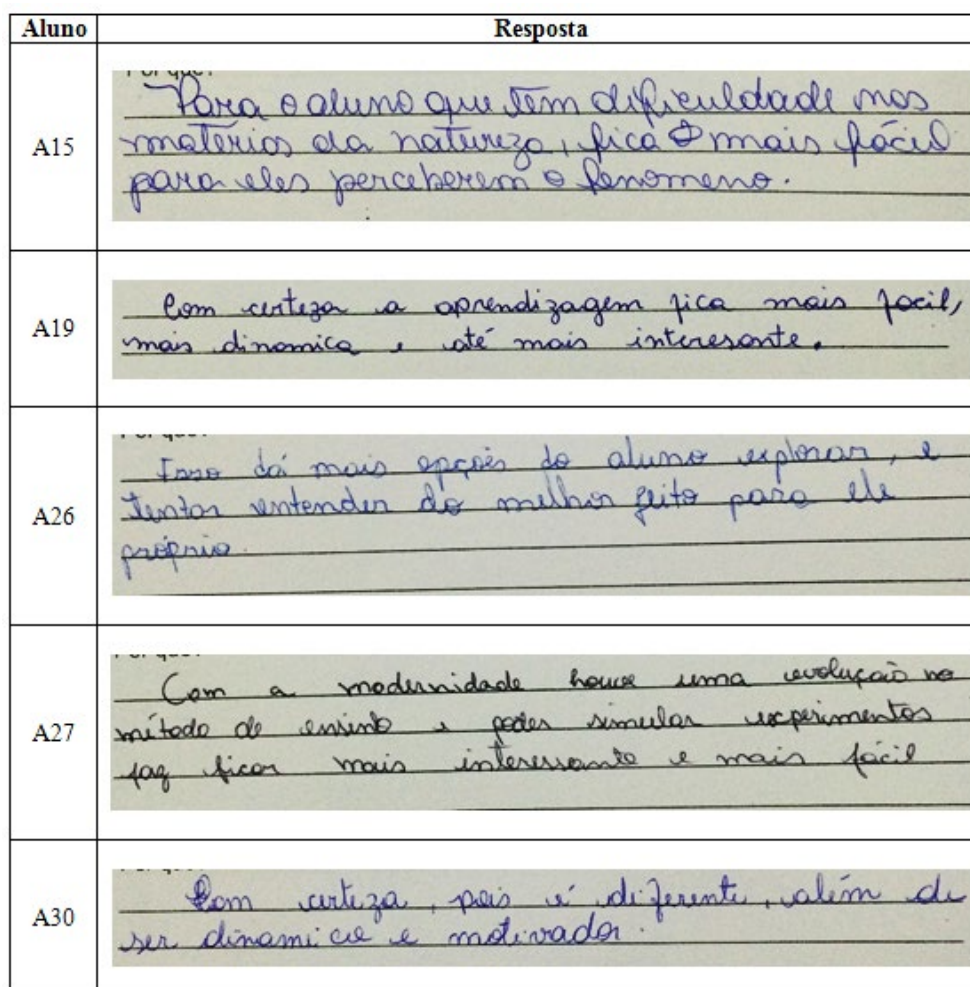 Aluno Resposta
A15
Por que?
Para o aluno que tem dificuldade nas
matérias da natureza, fica mais fácil
para eles perceberem o fenomeno.
A19
Com certeza a aprendizagem fica mais facil,
mais dinamica e até mais interesante.
A26
Por que?
Isso dá mais opções do aluno explorar, e
tentar entender do melhor jeito para ele
próprio.
A27
Por que?
Com a modernidade houve uma evolução no
método de ensino e poder simular experimentos
faz ficar mais interessante e mais fácil
A30
Com certeza, pois é diferente, além de
ser dinamico e motivador.